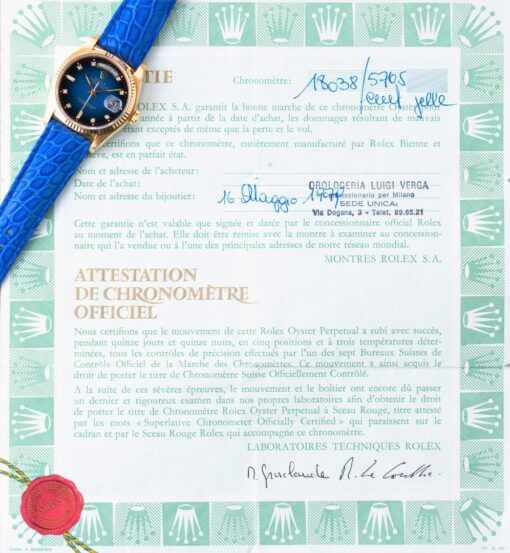 TIE
Chronomètre: 18038/5705
OLEX S.A. garantit la bonne marche de ce chronomètre Oyster
année à partir de la date d'achat, les dommages résultant de mauvais
étant exceptés de même que la perte et le vol.
certifions que ce chronomètre, entièrement manufacturé par Rolex Bienne et
nève, est en parfait état.
Nom et adresse de l'acheteur:
Date de l'achat:
Nom et adresse du bijoutier:
16 Maggio
OROLOGERIA LUIGI VERGA
Concessionario per Milano
SEDE UNICA:
Via Dogana, 3 - Telef. 89.65.21
Cette garantie n'est valable que signée et datée par le concessionnaire officiel Rolex
au moment de l'achat. Elle doit être remise avec la montre à examiner au concession-
naire qui l'a vendue ou à l'une des principales adresses de notre réseau mondial.
MONTRES ROLEX S.A.
ATTESTATION
DE CHRONOMÈTRE
OFFICIEL
Nous certifions que le mouvement de cette Rolex Oyster Perpetual a subi avec succès,
pendant quinze jours et quinze nuits, en cinq positions et à trois températures déter-
minées, tous les contrôles de précision effectués par l'un des sept Bureaux Suisses de
Contrôle Officiel de la Marche des Chronomètres. Ce mouvement a ainsi acquis le
droit de porter le titre de Chronomètre Suisse Officiellement Contrôlé.
A la suite de ces sévères épreuves, le mouvement et le boîtier ont encore dû passer
un dernier et rigoureux examen dans nos propres laboratoires afin d'obtenir le droit
de porter le titre de Chronomètre Rolex Oyster Perpetual à Sceau Rouge, titre attesté
par les mots «Superlative Chronometer Officially Certified» qui paraissent sur le
cadran et par le Sceau Rouge Rolex qui accompagne ce chronomètre.
LABORATOIRES TECHNIQUES ROLEX
Printed in Switzerland